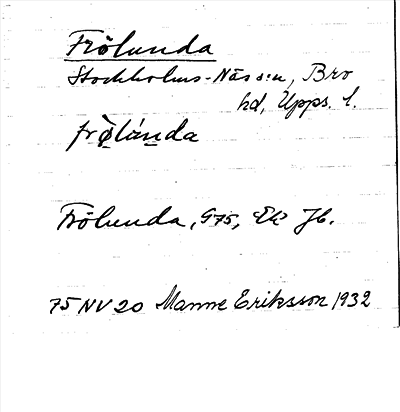 Frölunda
Stockholms-Näs sn, Bro
hd, Upps. l.
frø̀lúnda
Frölunda, G75, Ek Jb.
75 NV 20 Manne Eriksson 1932